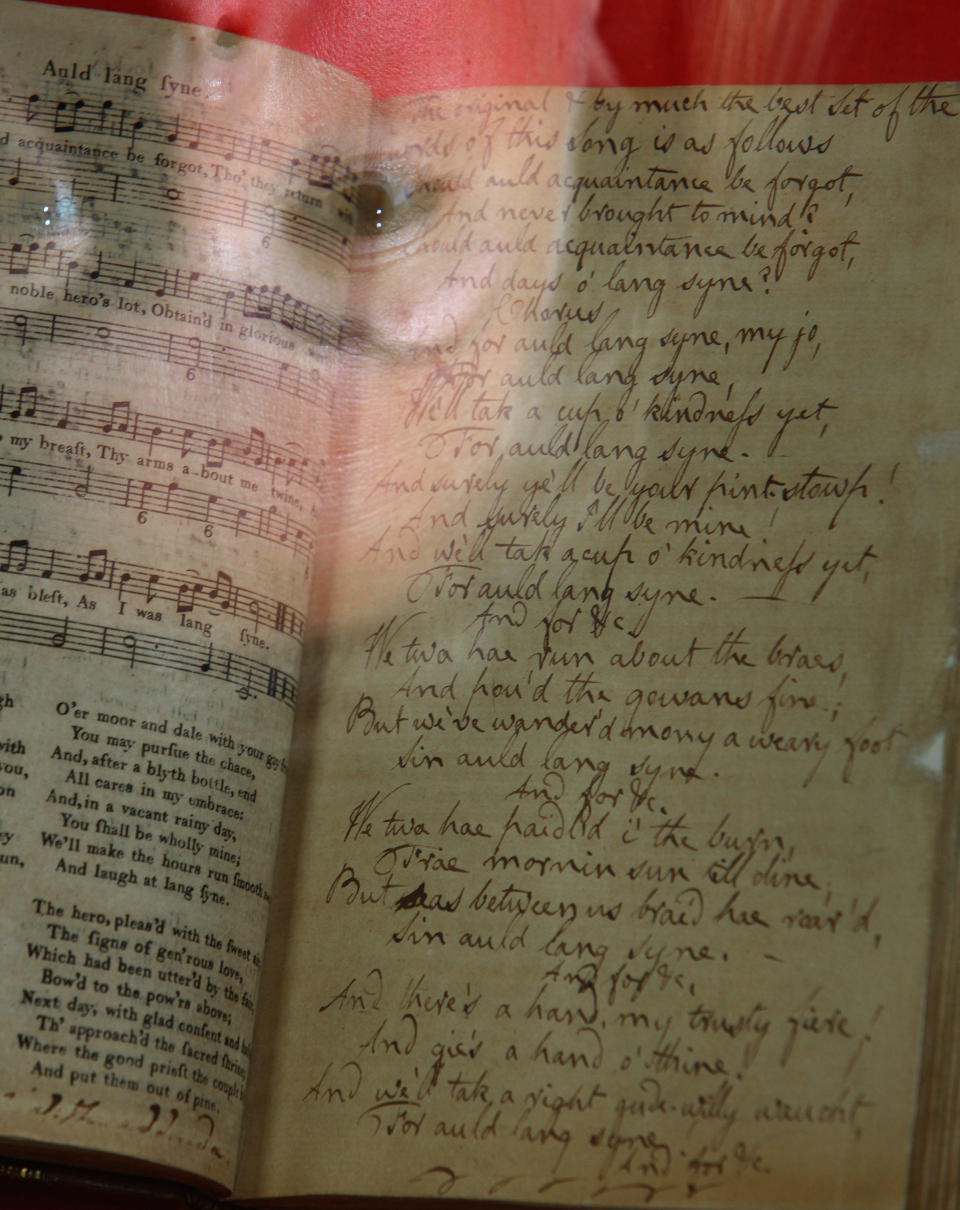 Auld lang ſyne.
d acquaintance be forgot, Tho' they return
noble hero's lot, Obtain'd in glorious
6
6
my breaſt, Thy arms a-bout me twine,
6 6
as bleſt, As I was lang ſyne.
gh
with
you,
on
ey
un,
O'er moor and dale with your gay
You may purſue the chace,
And, after a blyth bottle, end
All cares in my embrace:
And, in a vacant rainy day,
You ſhall be wholly mine;
We'll make the hours run ſmooth
And laugh at lang ſyne.
The hero, pleas'd with the ſweet
The ſigns of gen'rous love,
Which had been utter'd by the fair,
Bow'd to the pow'rs above;
Next day, with glad conſent and
Th' approach'd the ſacred ſhrine;
Where the good prieſt the couple
And put them out of pine.
The original & by much the best set of the
words of this song is as follows
Should auld acquaintance be forgot,
And never brought to mind?
Should auld acquaintance be forgot,
And days o' lang syne?
Chorus
And for auld lang syne, my jo,
For auld lang syne,
We'll tak a cup o' kindneſs yet,
For auld lang syne.
And surely ye'll be your pint-stowp!
And surely I'll be mine!
And we'll tak a cup o' kindneſs yet,
For auld lang syne.
And for &c.
We twa hae run about the braes,
And pou'd the gowans fine;
But we've wander'd mony a weary foot
Sin auld lang syne.
And for &c.
We twa hae paidl'd i' the burn,
Frae mornin sun till dine;
But seas between us braid hae roar'd,
Sin auld lang syne.
And for &c.
And there's a hand, my trusty fiere!
And gie's a hand o' thine!
And we'll tak a right gude-willy waught,
For auld lang syne
And for &c.